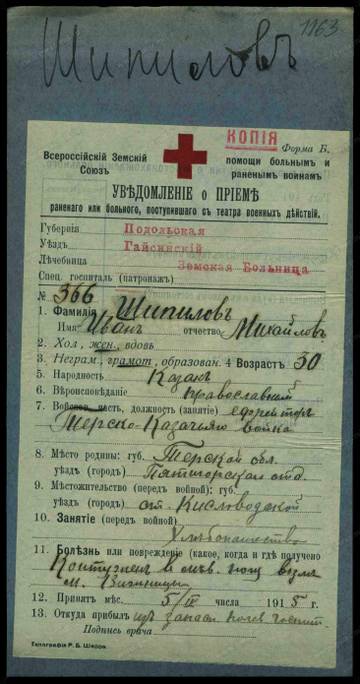 1163
Шипиловъ
КОПІЯ
Форма Б.
Всероссійскій Земскій Союзъ
помощи больнымъ и раненымъ воинамъ
УВѢДОМЛЕНІЕ о ПРІЕМѢ
раненаго или больного, поступившаго съ театра военныхъ дѣйствій.
Губернія Подольская
Уѣздъ Гайсинскій
Лѣчебница Земская Больница
Спец. госпиталь (патронажъ)
№ 366
1. Фамилія Шипиловъ
Имя Иванъ отчество Михайловъ
2. Хол., жен., вдовъ
3. Неграм., грамот., образован. 4 Возрастъ 30
5. Народность Казакъ
6. Вѣроисповѣданіе православный
7. Войсков. часть, должность (занятіе) ефрейторъ
Терско-Казачьяго войска
8. Мѣсто родины: губ. Терской обл.
уѣздъ (городъ) Пятигорской отд.
9. Мѣстожительство (передъ войной): губ.
уѣздъ (городъ) ст. Кисловодской
10. Занятіе (передъ войной)
Хлѣбопашество
11. Болѣзнь или поврежденіе (какое, когда и гдѣ получено
Контуженъ в лѣв. ногу возлѣ
м.
12. Принятъ мѣс. 5/IV числа 1915 г.
13. Откуда прибылъ изъ запасн. госпит.
Подпись врача
Типографія Р. Б. Шерра.